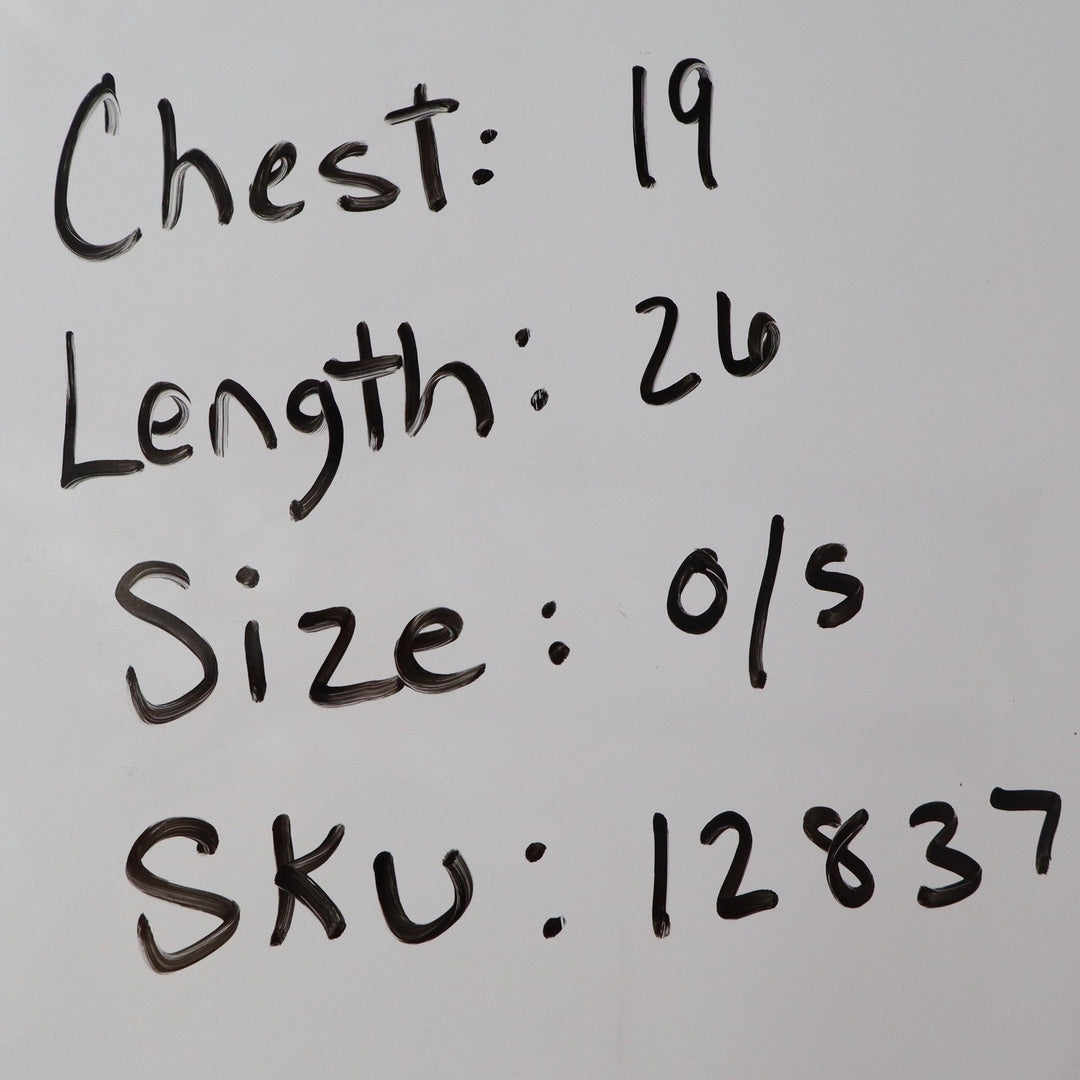 Chest: 19
Length: 26
Size: o/s
SKU: 12837